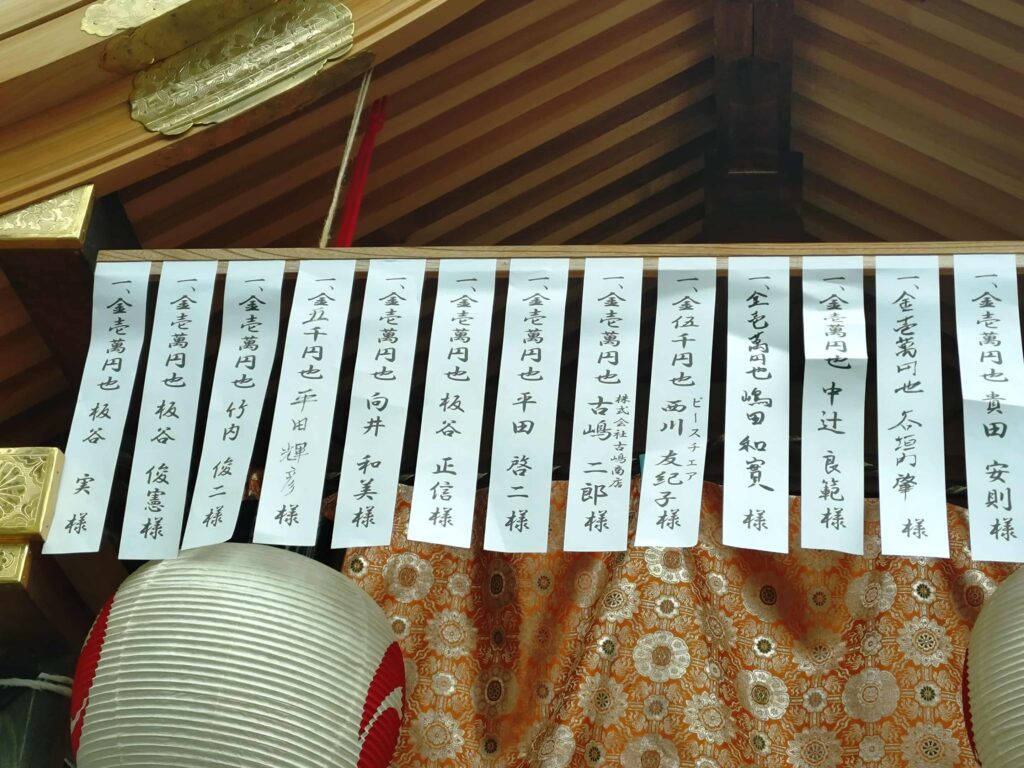 一、金壱萬円也 貴田 安則様
一、金壱萬円也 肇様
一、金壱萬円也 中辻 良範様
一、金壱萬円也 嶋田 和實様
一、金伍千円也 ピースチェア 西川 友紀子様
一、金壱萬円也 株式会社古嶋商店 古嶋 二郎様
一、金壱萬円也 平田 啓二様
一、金壱萬円也 板谷 正信様
一、金壱萬円也 向井 和美様
一、金五千円也 平田 輝彦様
一、金壱萬円也 竹内 俊二様
一、金壱萬円也 板谷 俊憲様
一、金壱萬円也 板谷 実様